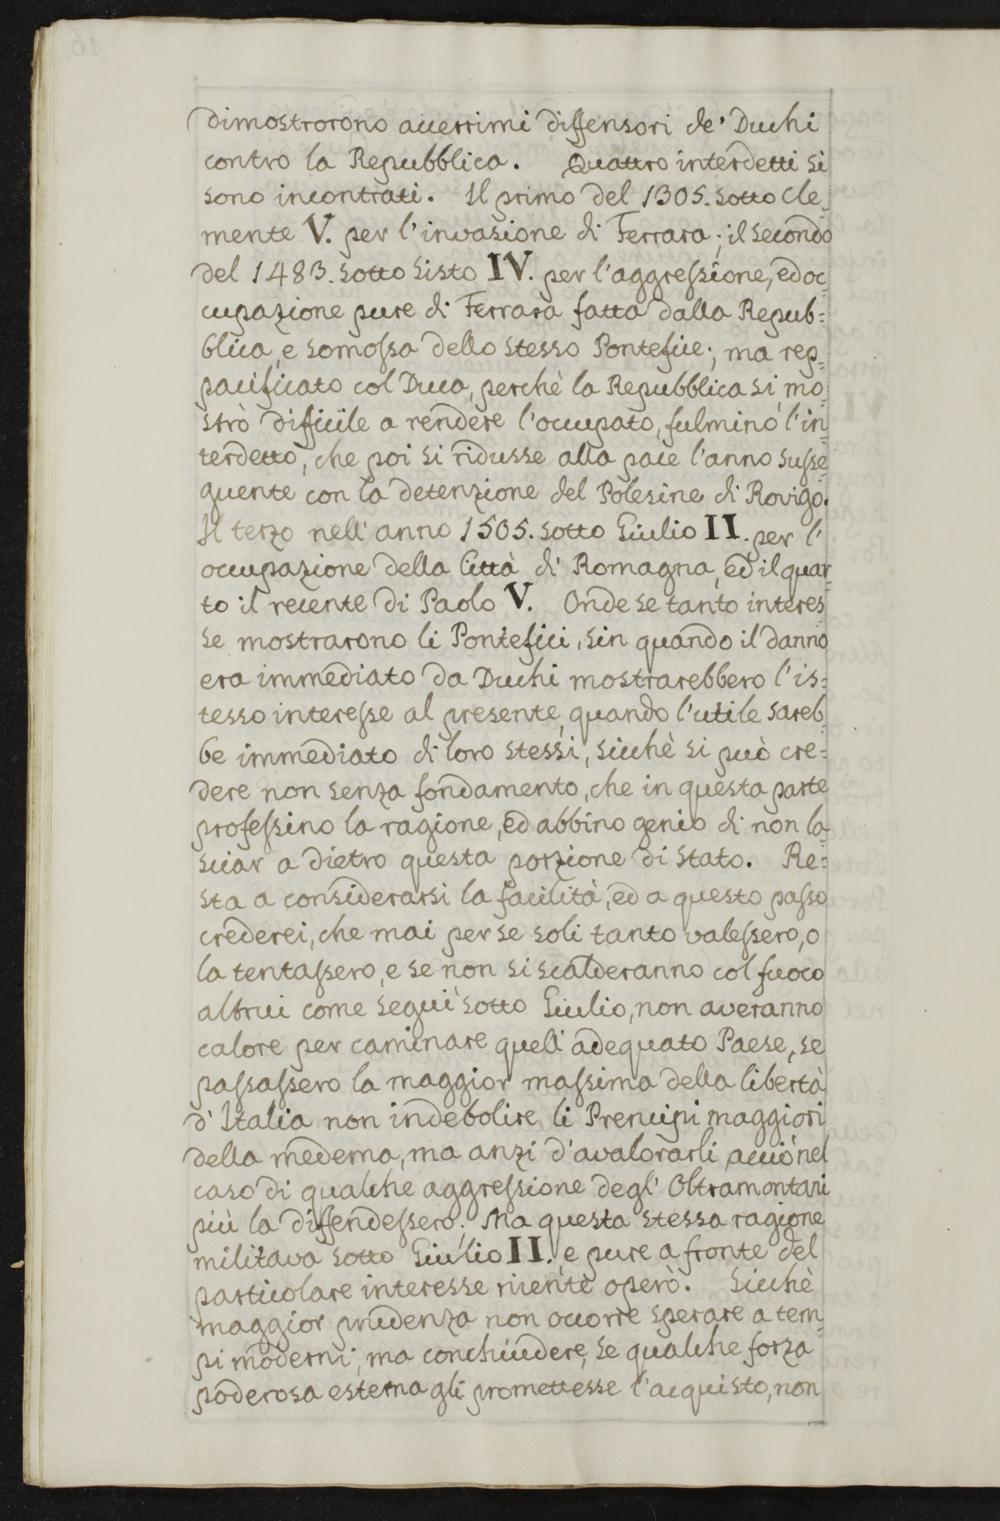 dimostrorono acerrimi diffensori de' Duchi
contro la Repubblica. Quattro interdetti si
sono incontrati. Il primo del 1305. sotto Cle-
mente V. per l'invasione di Ferrara; il secondo
del 1483. sotto Sisto IV. per l'aggressione, ed oc-
cupazione pure di Ferrara fatta dalla Repub=
blica, e somossa dello stesso Pontefice; ma rep-
pacificato col Duca, perchè la Repubblica si mo-
strò difficile a rendere l'occupato, fulminò l'in-
terdetto, che poi si ridusse alla pace l'anno susse-
quente con la detenzione del Polesine di Rovigo.
Il terzo nell'anno 1505. sotto Giulio II. per l'
occupazione della Città di Romagna, ed il quar-
to il recente di Paolo V. Onde se tanto interes-
se mostrarono li Pontefici, sin quando il danno
era immediato da Duchi mostrarebbero l'is=
tesso interesse al presente, quando l'utile sareb-
be immediato di loro stessi, sicchè si può cre=
dere non senza fondamento, che in questa parte
professino la ragione, ed abbino genio di non la-
sciar a dietro questa porzione di Stato. Re=
sta a considerarsi la facilità, ed a questo passo
crederei, che mai per se soli tanto valessero, o
la tentassero, e se non si scalderanno col fuoco
altrui come seguì sotto Giulio, non averanno
calore per caminare quell'adequato Paese, se
passassero la maggior massima della libertà
d'Italia non indebolire li Prencipi maggiori
della medema, ma anzi d'avalorarli, acciò nel
caso di qualche aggressione degl'Oltramontani
più la diffendessero. Ma questa stessa ragione
militava sotto Giulio II. e pure a fronte del
particolare interesse niente operò. Sicchè
maggior prudenza non occorre sperare a tem-
pi moderni; ma conchiudere, se qualche forza
poderosa esterna gli promettesse l'acquisto, non